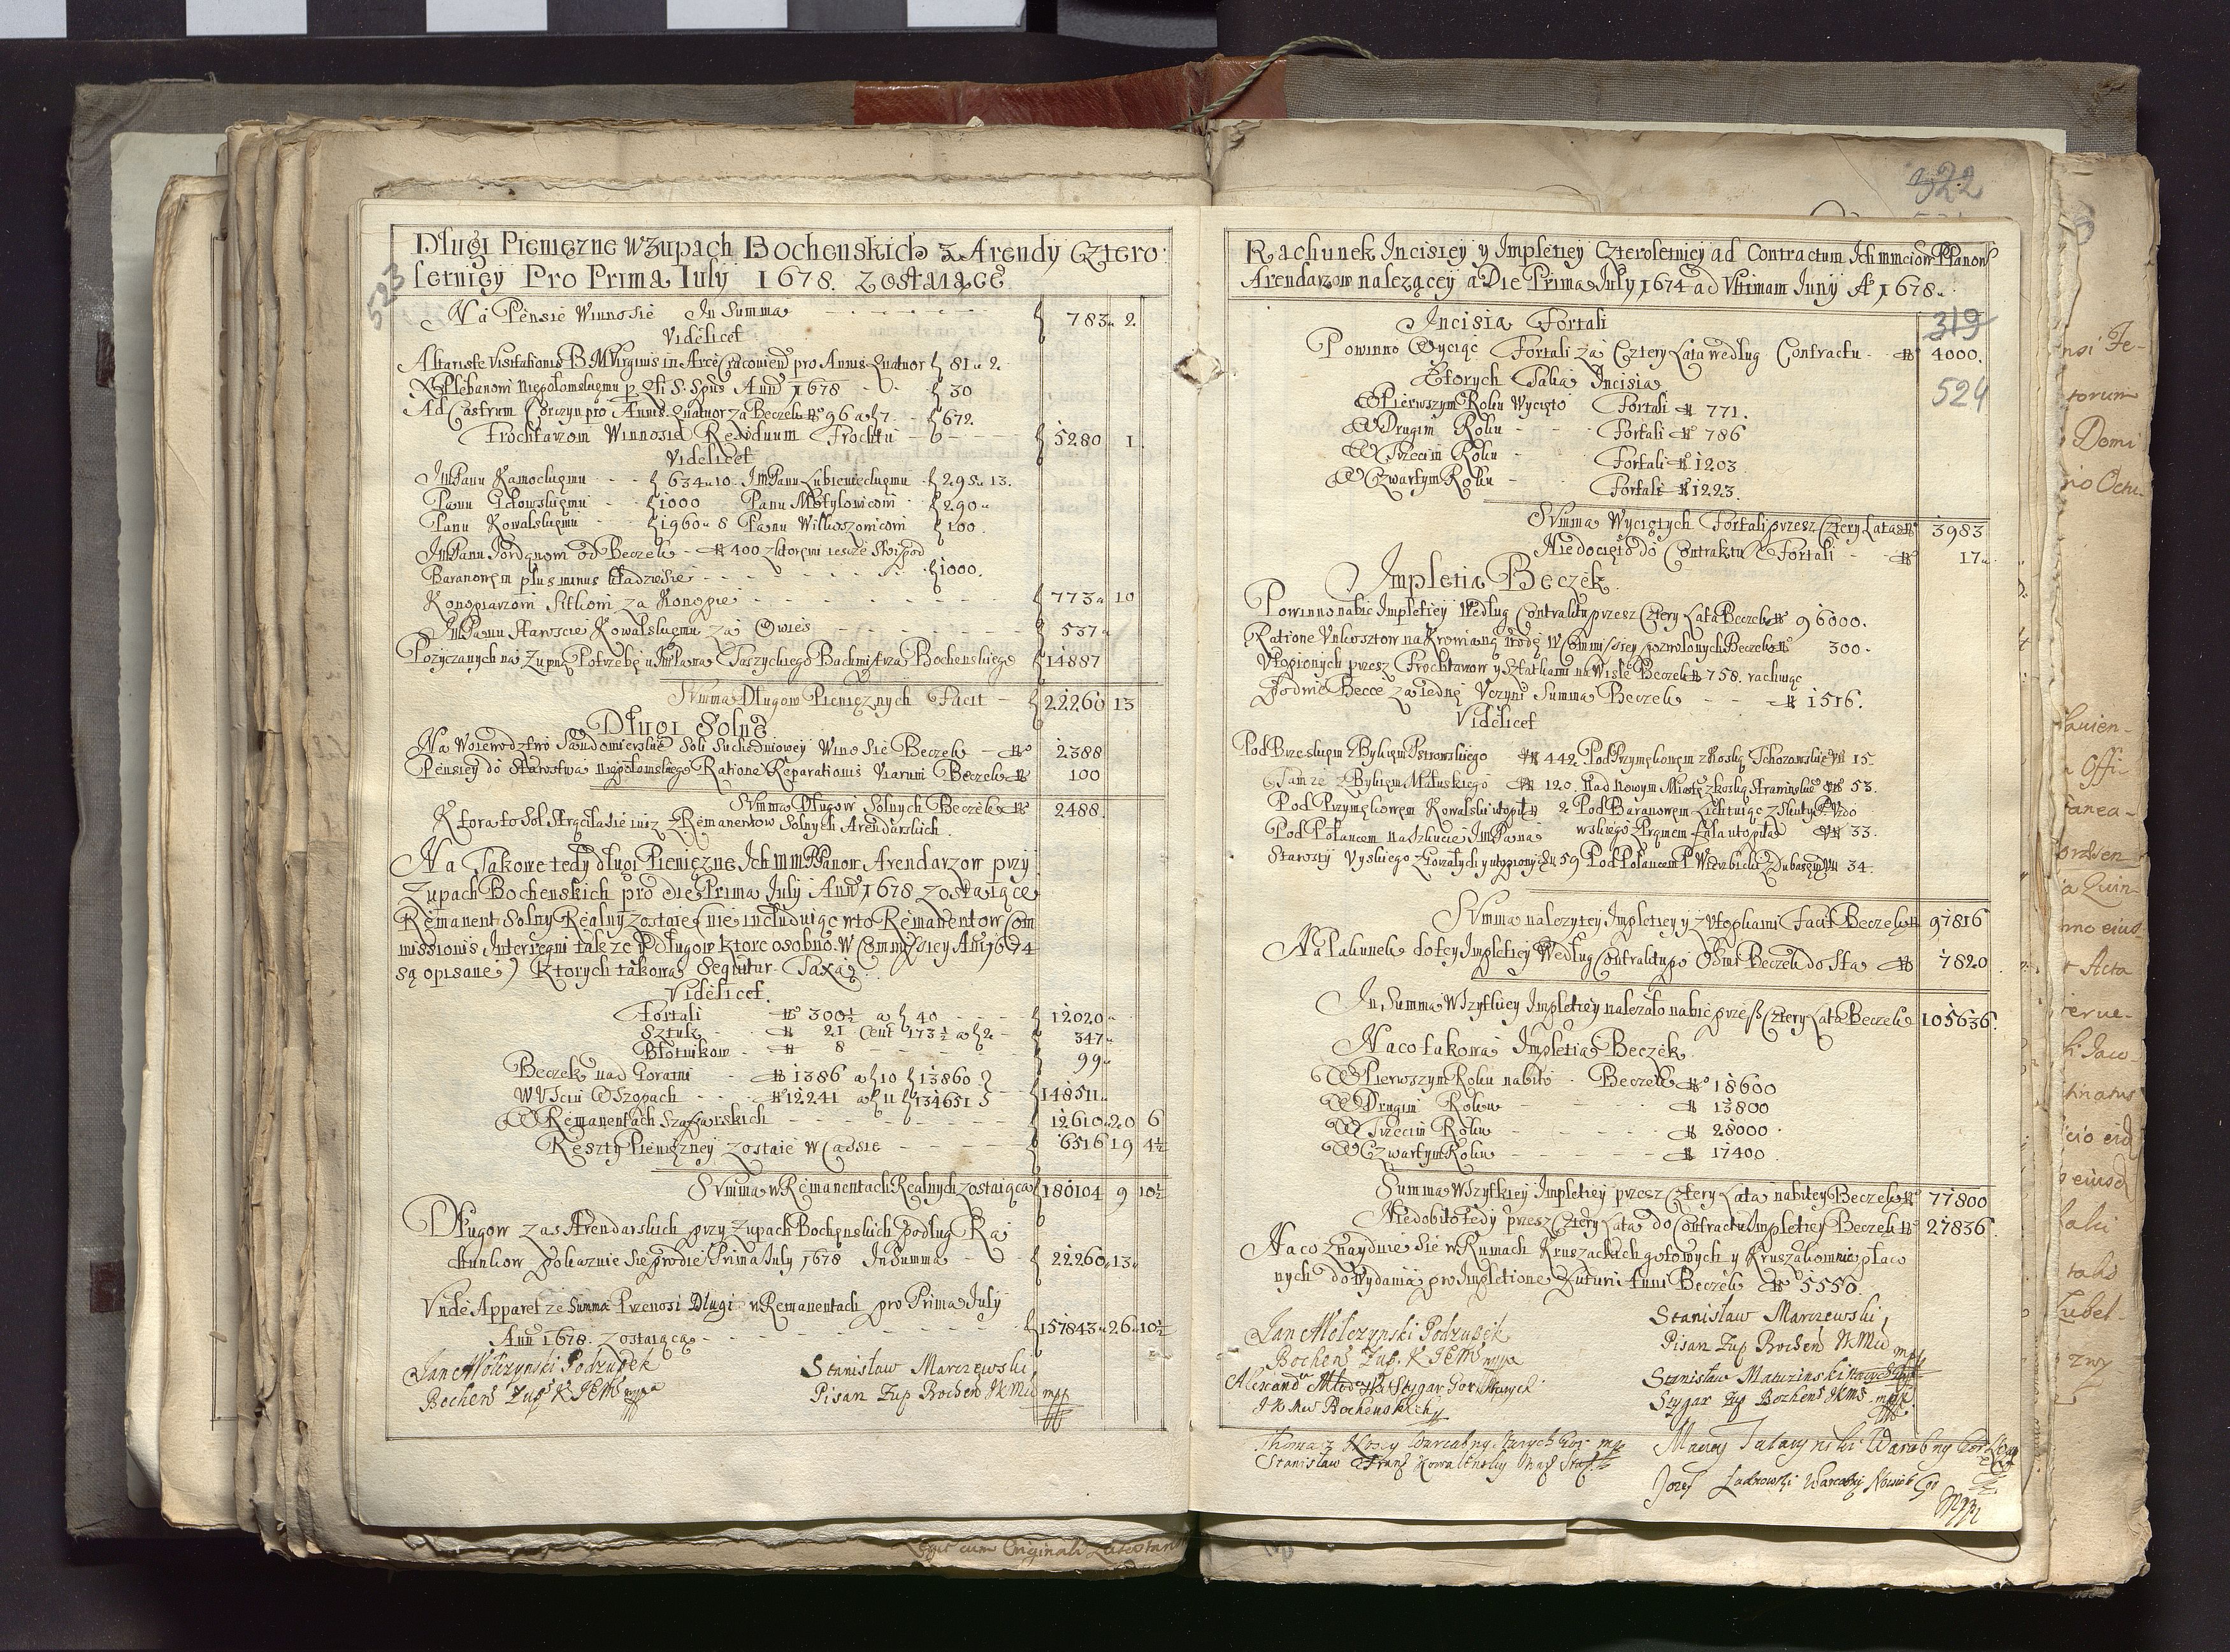 523
Długi Pieniężne w Zupach Bochenskich z Arendy Cztero
letniey Pro Prima July 1678. zostaiące
Na Pensie Winno sie In Summa - - - 783 „ 2
Videlicet
Altariste Visitationis B. M. Virginis in Arce Cracovien pro Annis Quatuor 81 „ 2.
X Plebanowi Niepołomskiemu p. Xli S. Spūs Anni 1678 - - 30
Ad Castrum Corczyn pro Annis Quatuor za Beczek No 96 a 7 - 672
Frochtarzom Winno sie Residuum Frochtu - - - 5280 1
Videlicet
Im Panu Kamockiemu - - 634 „ 10. Im Panu Lubienieckiemu 295 „ 13.
Panu Głowskiemu - - 1000 Panu Motylowicowi - 290 „
Panu Kowalskiemu - - 1960 „ 8 Panu Wilkoszowicowi 100.
Im Panu Jordanowi od Beczek - No 400 z ktoremi iescze Skis pod
Baranowem plus minus kładzie sie - - - 1000.
Konopiarzom Sitkom za Konopie - - - 773 „ 10
Im Panu Staroscie Kowalskiemu za Owies - - - 537 „
Pozyczanych na Zupną Potrzebę u Im Pana Taszyckiego Bachmistrza Bochenskiego 14887
Summa Długow Pieniężnych Facit - 22260 13
Długi Solne
Na Woiewodztwo Sendomierskie Soli Suchedniowey Wino sie Beczek - No 2388
Pensiey do Starostwa Niepołomskiego Ratione Reparationis Viarum Beczek No 100
Summa Długow Solnych Beczek No 2488.
Ktora to Sol Strąciła sie iuz z Remanentow Solnych Arendarskich.
Na Takowe tedy długi Pieniężne Ich mm PPanow Arendarzow przy
Zupach Bochenskich pro die Prima July Anni 1678 zostaiące
Remanent Solny Realny zostaie (nie includuiąc w to Remanentow Com
missionis Interregni takze y Długow ktore osobno w Commissiey Ani 1674
są opisane) Ktorych takowa Sequitur Taxa
Videlicet.
Fortali No 300½ a 40 - - - 12020 „
Sztuk - - No 21 Cent 173½ a 2 - 347 „
Błotnikow - No 8 - - - 99 „
Beczek nad Gorami - No 1386 a 10 13860
W Uściu w Szopach - - No 12241 a 11 134651 148511 „
W Remanentach Szafarskich - - - 12610 „ 20 6
Reszty Pieniężney zostaie w Cassie - - - 6516 19 4½
Summa w Remanentach Realnych zostaiąca 180104 9 10½
Długow zas Arendarskich przy Zupach Bochenskich podług Ra
chunkow pokazuie sie pro die Prima July 1678 In Summa - 22260 „ 13 „
Unde Apparet ze Summa Przenosi Długi w Remanentach pro Prima July
Anni 1678. zostaiąca - - - 157843 „ 26 „ 10½
Jan Młoczynski Podzupek
Bochens Zup K JEMs mppa
Stanisław Marczewski
Pisarz Zup Bochen JKMci mpp
322
Rachunek Incisiey y Impletiey Czteroletniey ad Contractum Ich mmciow PPanow
Arendarzow nalezącey a Die Prima July 1674 ad Ultimam Juny Ao 1678.
319
524
Incisia Fortali
Powinno Wyciąc Fortali za Cztery Lata według Contractu - No 4000.
Ktorych Talia Incisia
W Pierwszym Roku Wycięto Fortali No 771.
W Drugim Roku - - Fortali No 786
W Trzecim Roku - Fortali No 1203
W Czwartym Roku - Fortali No 1223.
Summa Wyciętych Fortali przesz Cztery Lata No 3983
Niedocięto do Contraktu Fortali - No 17 „
Impletia Beczek
Powinno nabic Impletiey Według Contraktu przesz Cztery Lata Beczek No 96000.
Ratione Unkosztow na Krowianą wodę w Commissiey pozwolonych Beczek No 300.
Utopionych przesz Frochtarzow y Sztatkami na Wisle Beczek No 758. rachuiąc
Po dwie Becce za iednę Uczyni Summa Beczek - - No 1516.
Videlicet
Pod Brzeskiem z Bykiem Ostrowskiego No 442. Pod Przymykowem z Koską Tchorzowskie No 15.
Tamze z Bykiem Małuskiego No 120. Nad Nowym Miastē z koską Straminskie No 53.
Pod Przymykowem Kowalski utopił No 2 Pod Baranowem Lichtuiąc z Skuty P. Wdo
wskiego Prąmem Fala utopiła No 33.
Pod Połancem na Szkucie Im Pana
Starosty Uyskiego z Gorzałych y utopionych No 59 Pod Połancem P Wierzbicki z Dubasem No 34.
Summa nalezytey Impletiey y z Utopkami Facit Beczek No 97816
Na Pakunek do tey Impletiey Według Contraktu po Osmi Beczek do Sta No 7820
In Summa Wszytkiey Impletiey nalezało nabic przesz Cztery Lata Beczek 105636.
Na co takowa Impletia Beczek
W Pierwszym Roku nabito - Beczek No 18600
W Drugim Roku - - - No 13800
W Trzecim Roku - - - No 28000
W Czwartym Roku - - - No 17400
Summa Wszytkiey Impletiey przesz Cztery Lata nabitey Beczek No 77800
Niedobito tedy przesz Cztery Lata do Contractu Impletiey Beczek No 27836.
Na co znayduie sie w Rumach Kruszackich gotowych y Kruszakom nie płaco
nych do Wydania pro Impletione Futuri Anni Beczek No 5550.
Jan Młoczynski Podzupek
Bochens Zup. K JEMs mppa
Stanisław Marczewski,
Pisarz Zup Bochens JKMci mpp
Stanisław Maturinski
Stygar Zup Bochens JKMs mpp
Stanisław